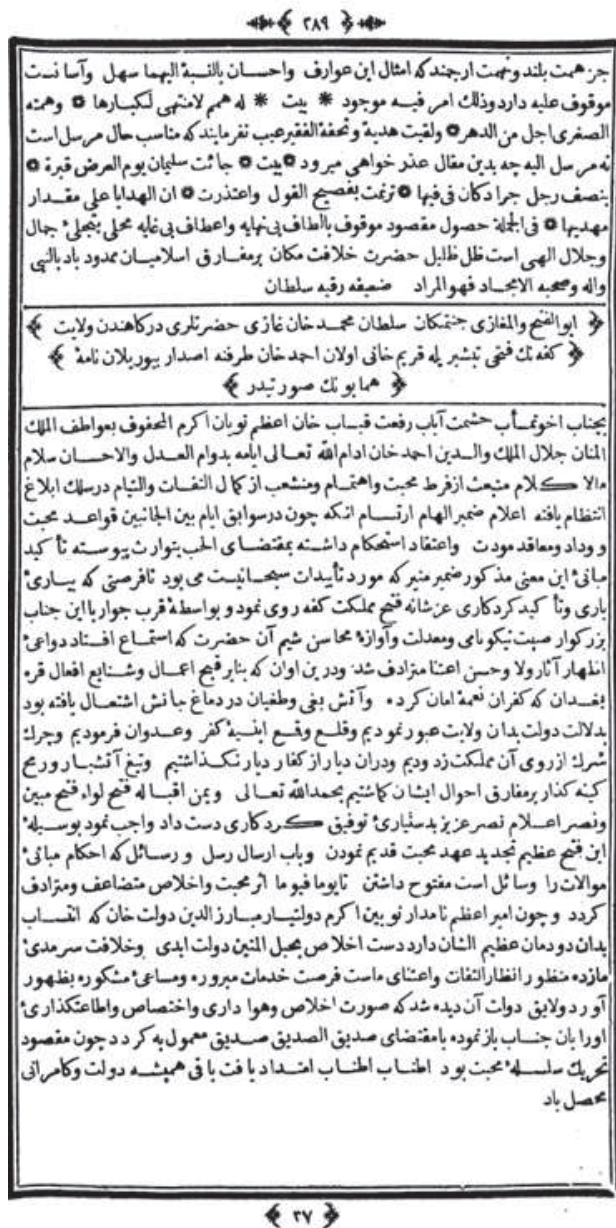 ﴿ ٢٨٩ ﴾
جز همت بلند ونهمت ارجمند كه امثال اين عوارف واحسان بالنسبة اليهما سهل وآسا نست
موقوف عليه دارد وذلك امر فيه موجود * بيت * له همم لا منتهى لكبارها * وهمته
الصغرى اجل من الدهر * ولقيت هدية وتحفة الفقير عيب نفرمايند كه مناسب حال مرسل است
نه مرسل اليه چه بدين مقال عذر خواهى ميرود * بيت * جائت سليمان يوم العرض قبرة *
بنصف رجل جراد كان فى فيها * ترنمت بفصيح القول واعتذرت * ان الهدايا على مقدار
مهديها * فى الجملة حصول مقصود موقوف بالطاف بى نهايه واعطاف بى غايه محلى بتجلئ جمال
وجلال الهى است ظل ظليل حضرت خلافت مكان برمفارق اسلاميان ممدود باد بالنبى
واله وصحبه الامجاد فهو المراد ضعيفه رقيه سلطان
﴿ ابو الفتح والمغازى جنتمكان سلطان محمد خان غازى حضرتلرى دركاهندن ولايت ﴾
﴿ كفه نك فتحى تبشيريله قريم خانى اولان احمد خان طرفنه اصدار بيوريلان نامۀ ﴾
﴿ همايونك صورتيدر ﴾
بجناب اخوتمـأب حشمت آياب رفعت قباب خان اعظم نويان اكرم المحفوف بعواطف الملك
المنان جلال الملك والدين احمد خان ادام الله تعالى ايامه بدوام العدل والاحسان سلام
مالا كلام منبعث ازفرط محبت واهتمام ومنشعب از كمال التفات والتيام درسلك ابلاغ
انتظام يافته اعلام ضمير الهام ارتسام انكه چون درسوابق ايام بين الجانبين قواعد محبت
ووداد ومعاقد مودت واعتقاد استحكام داشته بمقتضاى الحب يتوارث پيوسته تأكيد
مبانئ اين معنى مذكور ضمير منير كه مورد تأييدات سبحانيت مى بود تافرصتى كه بيارئ
بارى وتأكيد كردكارى عزشانه فتح مملكت كفه روى نمود وبواسطۀ قرب جوار با اين جناب
بزركوار صيت نيكونامى ومعدلت وآوازۀ محاسن شيم آن حضرت كه استماع افتاد دواعئ
اظهار آثار ولا وحسن اعتنا مترادف شد ودرين اوان كه بنابر قبح اعمال وشنايع افعال قره
بغدان كه كفران نعمۀ امان كرده وآتش بغى وطغيان دردماغ جانش اشتعال يافته بود
بدلالت دولت بدان ولايت عبور نموديم وقلع وقمع ابنيۀ كفر وعدوان فرموديم وچرك
شرك ازروى آن مملكت زدوديم ودران ديار از كفار ديار نكذاشتيم وتيغ آتشبار ورمح
كينه كذار برمفارق احوال ايشان كماشتيم بحمد الله تعالى وبمن اقباله فتح لواء فتح مبين
ونصر اعلام نصر عزيز بدستيارئ توفيق كردكارى دست داد واجب نمود بوسيلۀ
اين فتح عظيم تجديد عهد محبت قديم نمودن وباب ارسال رسل ورسائل كه احكام مبانئ
موالات را وسائل است مفتوح داشتن تايوما فيوما اثر محبت واخلاص متضاعف ومترادف
كردد وچون امير اعظم نامدار نويين اكرم دولتيار مبارز الدين دولت خان كه انتساب
بدان دودمان عظيم الشان دارد دست اخلاص بحبل المتين دولت ابدى وخلافت سرمدئ
مازده منظور انظار التفات واعتناى ماست فرصت خدمات مبروره ومساعئ مشكوره بظهور
آورد ولايق دولت آن ديده شد كه صورت اخلاص وهوا دارى واختصاص واطاعتكذارئ
اورا بان جناب باز نموده با مقتضاى صديق الصديق صديق معمول به كردد چون مقصود
تحريك سلسلۀ محبت بود اطناب اطناب امتداد يافت باقى هميشه دولت وكامرانى
محصل باد
﴿ ٣٧ ﴾